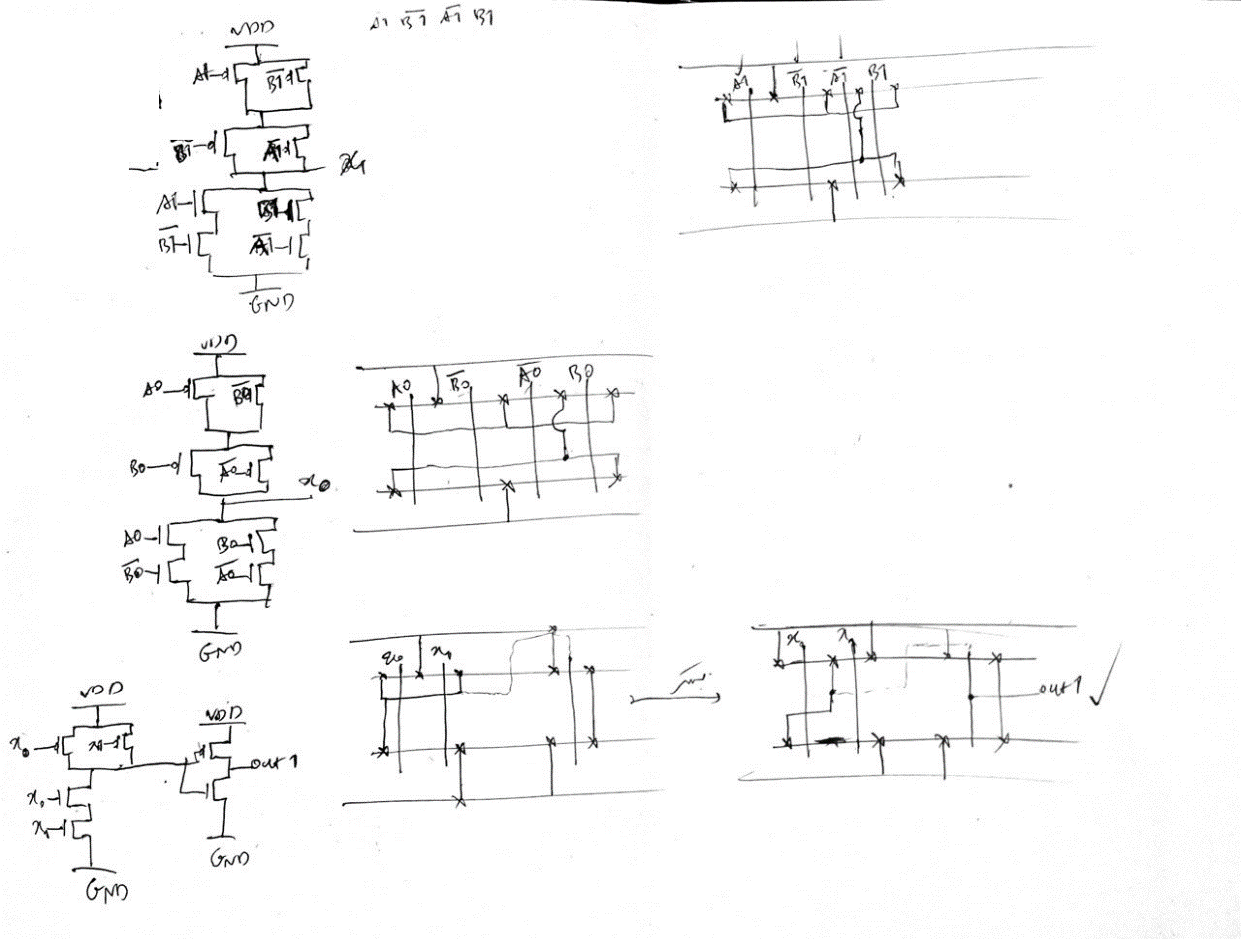 A1 B̅1̅ A̅1̅ B1
VDD
A1 B̅1̅
B̅1̅ A̅1̅
X1
A1 B1
B̅1̅ A̅1̅
GND
A1 B̅1̅ A̅1̅ B1
VDD
A0 B̅0̅
B0 A̅0̅
x0
A0 B0
B̅0̅ A̅0̅
GND
A0 B̅0̅ A̅0̅ B0
VDD
x0 x1
x0
x1
GND
VDD
out1
GND
x0 x1
x0 x1
out1